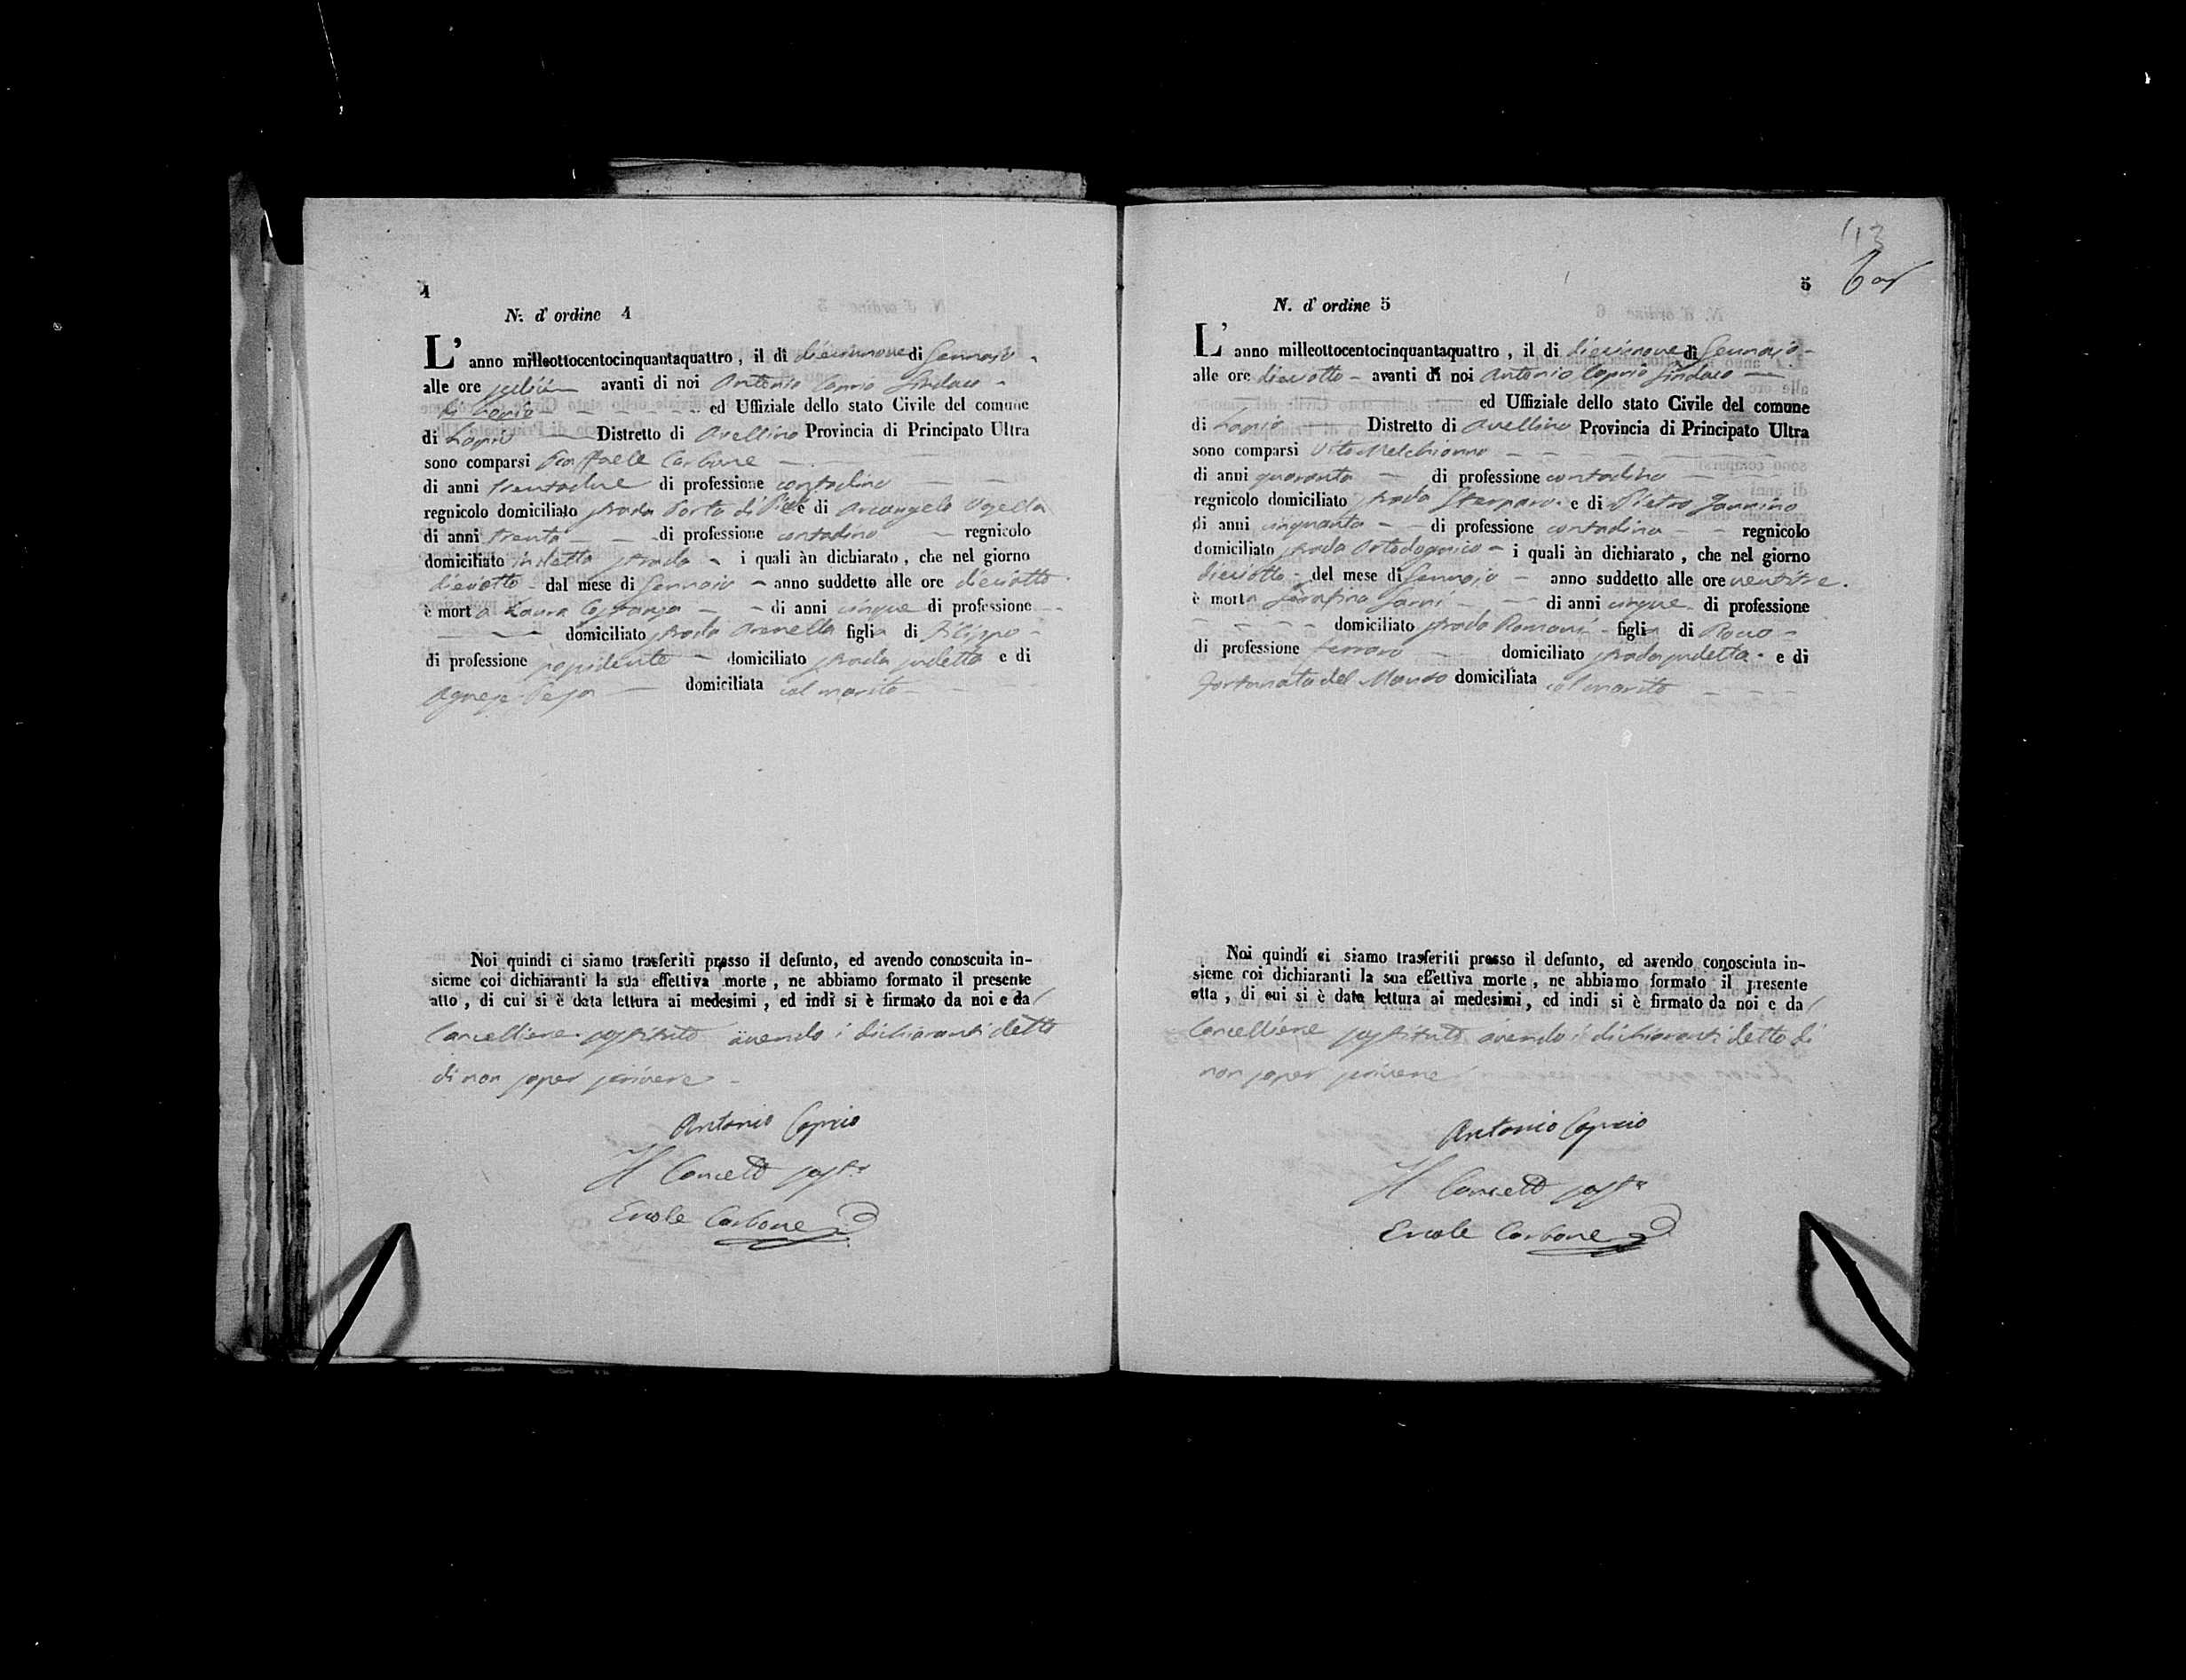 4
N. d' ordine 4
L' anno milleottocentocinquantaquattro, il di diecinnove di Gennajo
alle ore sedici avanti di noi Antonio Caprio Sindaco
di Lapio ed Uffiziale dello stato Civile del comune
di Lapio Distretto di Avellino Provincia di Principato Ultra
sono comparsi Raffaele Carbone
di anni trentadue di professione contadino
regnicolo domiciliato strada Porta di e di Arcangelo
di anni trenta di professione contadino regnicolo
domiciliato in detta strada i quali àn dichiarato, che nel giorno
dieciotto dal mese di Gennajo anno suddetto alle ore dieciotto
è morta Laura di anni cinque di professione
domiciliato strada figlia di Filippo
di professione possidente domiciliato strada sudetta e di
Agnese domiciliata col marito
Noi quindi ci siamo trasferiti presso il defunto, ed avendo conoscuita in-
sieme coi dichiaranti la sua effettiva morte, ne abbiamo formato il presente
atto, di cui si è data lettura ai medesimi, ed indi si è firmato da noi e da
Cancelliere sostituto avendo i dichiaranti detto
di non saper scrivere
Antonio Caprio
Il Cancell sostº
Ercole Carbone
113
5
N. d' ordine 5
L' anno milleottocentocinquantaquattro, il di diecinove di Gennajo
alle ore dieciotto avanti di noi Antonio Caprio Sindaco
ed Uffiziale dello stato Civile del comune
di Lapio Distretto di Avellino Provincia di Principato Ultra
sono comparsi Vito Melchionno
di anni quaranta di professione contadino
regnicolo domiciliato strada e di Pietro Jannino
di anni cinquanta di professione contadino regnicolo
domiciliato strada i quali àn dichiarato, che nel giorno
dieciotto del mese di Gennajo anno suddetto alle ore ventitre.
è morta Serafina di anni cinque di professione
domiciliato strada Romani figlia di Rocco
di professione ferraro domiciliato strada sudetta e di
Fortunata del Mauro domiciliata col marito
Noi quindi ci siamo trasferiti presso il defunto, ed avendo conosciuta in-
sieme coi dichiaranti la sua effettiva morte, ne abbiamo formato il presente
otta, di cui si è data lettura ai medesimi, ed indi si è firmato da noi e da
Cancelliere sostituto avendo i dichiaranti detto di
non saper scrivere
Antonio Caprio
Il Cancell sostº
Ercole Carbone